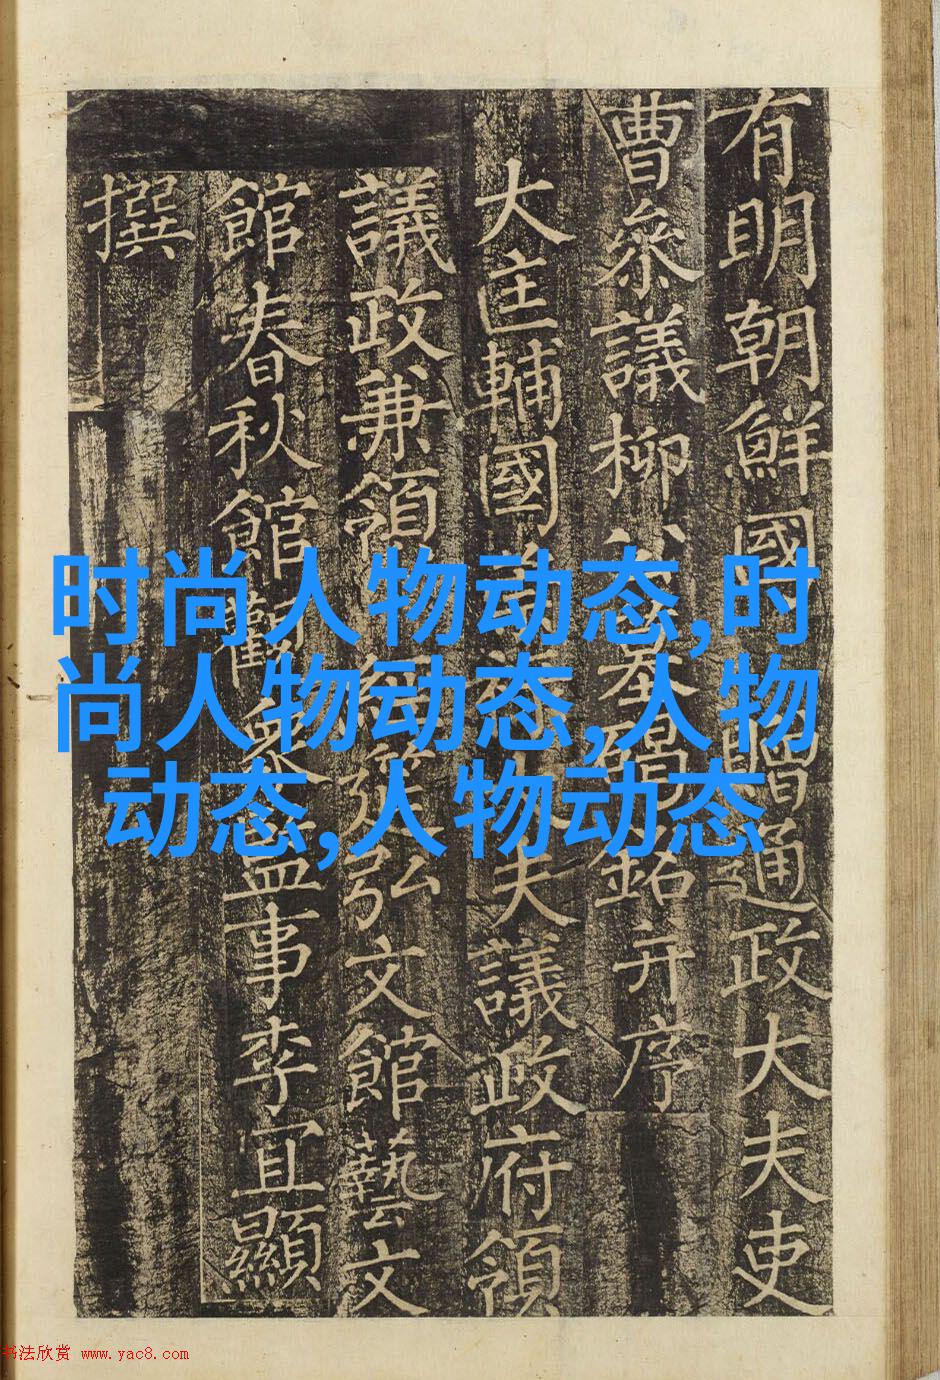 有明朝鮮國贈通政大夫吏
曹叅議柳公墓碣銘并序
大匡輔國崇祿大夫議政府領
議政兼領經筵弘文館藝文
館春秋館觀象監事李宜顯
撰
时尚人物动态,时
尚人物动态,人物
动态,人物动态
书法欣赏 www.yac8.com